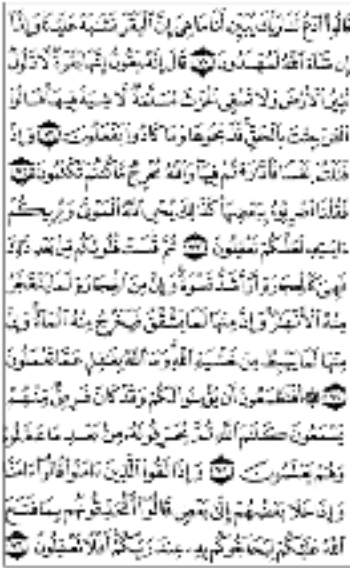 قَالُوا۟ ٱدْعُ لَنَا رَبَّكَ يُبَيِّن لَّنَا مَا هِىَ إِنَّ ٱلْبَقَرَ تَشَـٰبَهَ عَلَيْنَا وَإِنَّآ
إِن شَآءَ ٱللَّهُ لَمُهْتَدُونَ ٧٠ قَالَ إِنَّهُۥ يَقُولُ إِنَّهَا بَقَرَةٌ لَّا ذَلُولٌ
تُثِيرُ ٱلْأَرْضَ وَلَا تَسْقِى ٱلْحَرْثَ مُسَلَّمَةٌ لَّا شِيَةَ فِيهَا قَالُوا۟
ٱلْـَٔـٰنَ جِئْتَ بِٱلْحَقِّ فَذَبَحُوهَا وَمَا كَادُوا۟ يَفْعَلُونَ ٧١ وَإِذْ
قَتَلْتُمْ نَفْسًا فَٱدَّٰرَْٰٔتُمْ فِيهَا وَٱللَّهُ مُخْرِجٌ مَّا كُنتُمْ تَكْتُمُونَ ٧٢
فَقُلْنَا ٱضْرِبُوهُ بِبَعْضِهَا كَذَٰلِكَ يُحْىِ ٱللَّهُ ٱلْمَوْتَىٰ وَيُرِيكُمْ
ءَايَـٰتِهِۦ لَعَلَّكُمْ تَعْقِلُونَ ٧٣ ثُمَّ قَسَتْ قُلُوبُكُم مِّنۢ بَعْدِ ذَٰلِكَ
فَهِىَ كَٱلْحِجَارَةِ أَوْ أَشَدُّ قَسْوَةً وَإِنَّ مِنَ ٱلْحِجَارَةِ لَمَا يَتَفَجَّرُ
مِنْهُ ٱلْأَنْهَـٰرُ وَإِنَّ مِنْهَا لَمَا يَشَّقَّقُ فَيَخْرُجُ مِنْهُ ٱلْمَآءُ وَإِنَّ
مِنْهَا لَمَا يَهْبِطُ مِنْ خَشْيَةِ ٱللَّهِ وَمَا ٱللَّهُ بِغَـٰفِلٍ عَمَّا تَعْمَلُونَ
٧٤ ۞ أَفَتَطْمَعُونَ أَن يُؤْمِنُوا۟ لَكُمْ وَقَدْ كَانَ فَرِيقٌ مِّنْهُمْ
يَسْمَعُونَ كَلَـٰمَ ٱللَّهِ ثُمَّ يُحَرِّفُونَهُۥ مِنۢ بَعْدِ مَا عَقَلُوهُ
وَهُمْ يَعْلَمُونَ ٧٥ وَإِذَا لَقُوا۟ ٱلَّذِينَ ءَامَنُوا۟ قَالُوٓا۟ ءَامَنَّا
وَإِذَا خَلَا بَعْضُهُمْ إِلَىٰ بَعْضٍ قَالُوٓا۟ أَتُحَدِّثُونَهُم بِمَا فَتَحَ
ٱللَّهُ عَلَيْكُمْ لِيُحَآجُّوكُم بِهِۦ عِندَ رَبِّكُمْ أَفَلَا تَعْقِلُونَ ٧٦